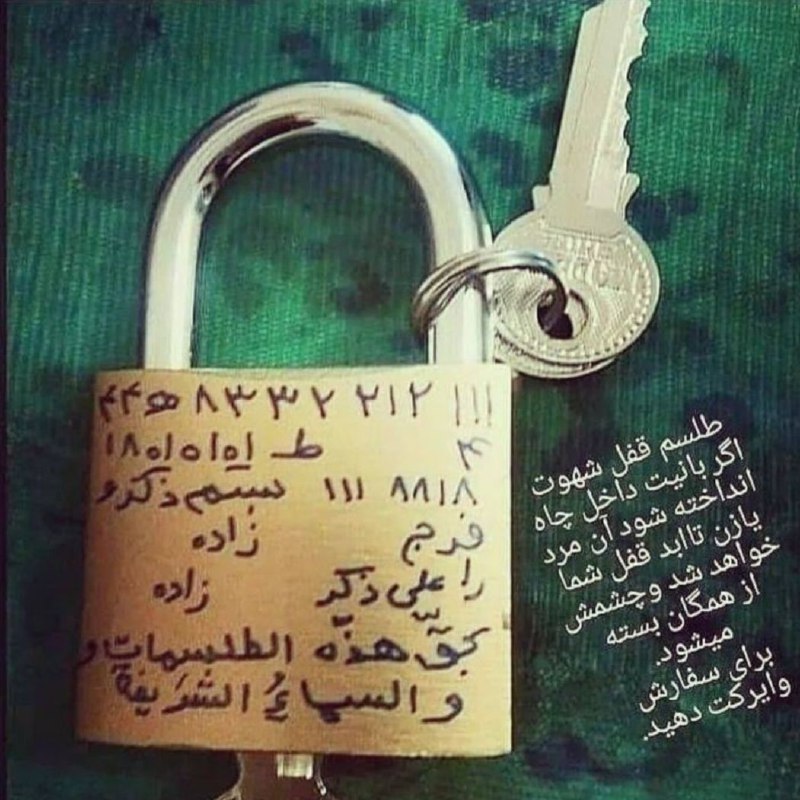 ۱۱۱ ۲۱۲ ۲ ۳۳ ۸
۴ ط
۸۸۱۸ ۱۱۱ بستم ذکر و
فرج زاده
را علی ذکر زاده
بحقّ هذّه الطلسمات و
و السماءُ الشَریفة
طلسم قفل شهوت
اگر بانیت داخل چاه
انداخته شود آن مرد
یازن تاابد قفل شما
خواهد شد وچشمش
از همگان بسته
میشود.
برای سفارش
وایرکت دهید.